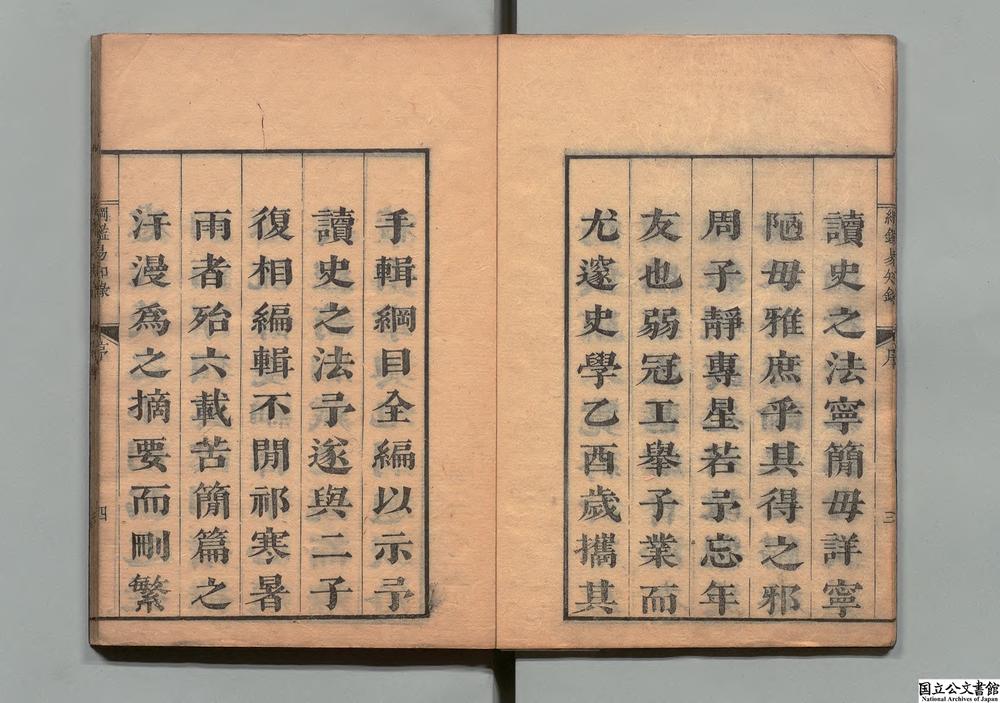 讀史之法寧簡毋詳寧
陋毋雅庶乎其得之邪
周子靜專星若予忘年
友也弱冠工舉子業而
尤邃史學乙酉歲攜其
手輯綱目全編以示予
讀史之法予遂與二子
復相編輯不閒祁寒暑
雨者殆六載苦簡篇之
汗漫爲之摘要而刪繁
綱鑑易知錄
序
三
綱鑑易知錄
序
四
国立公文書館
National Archives of Japan